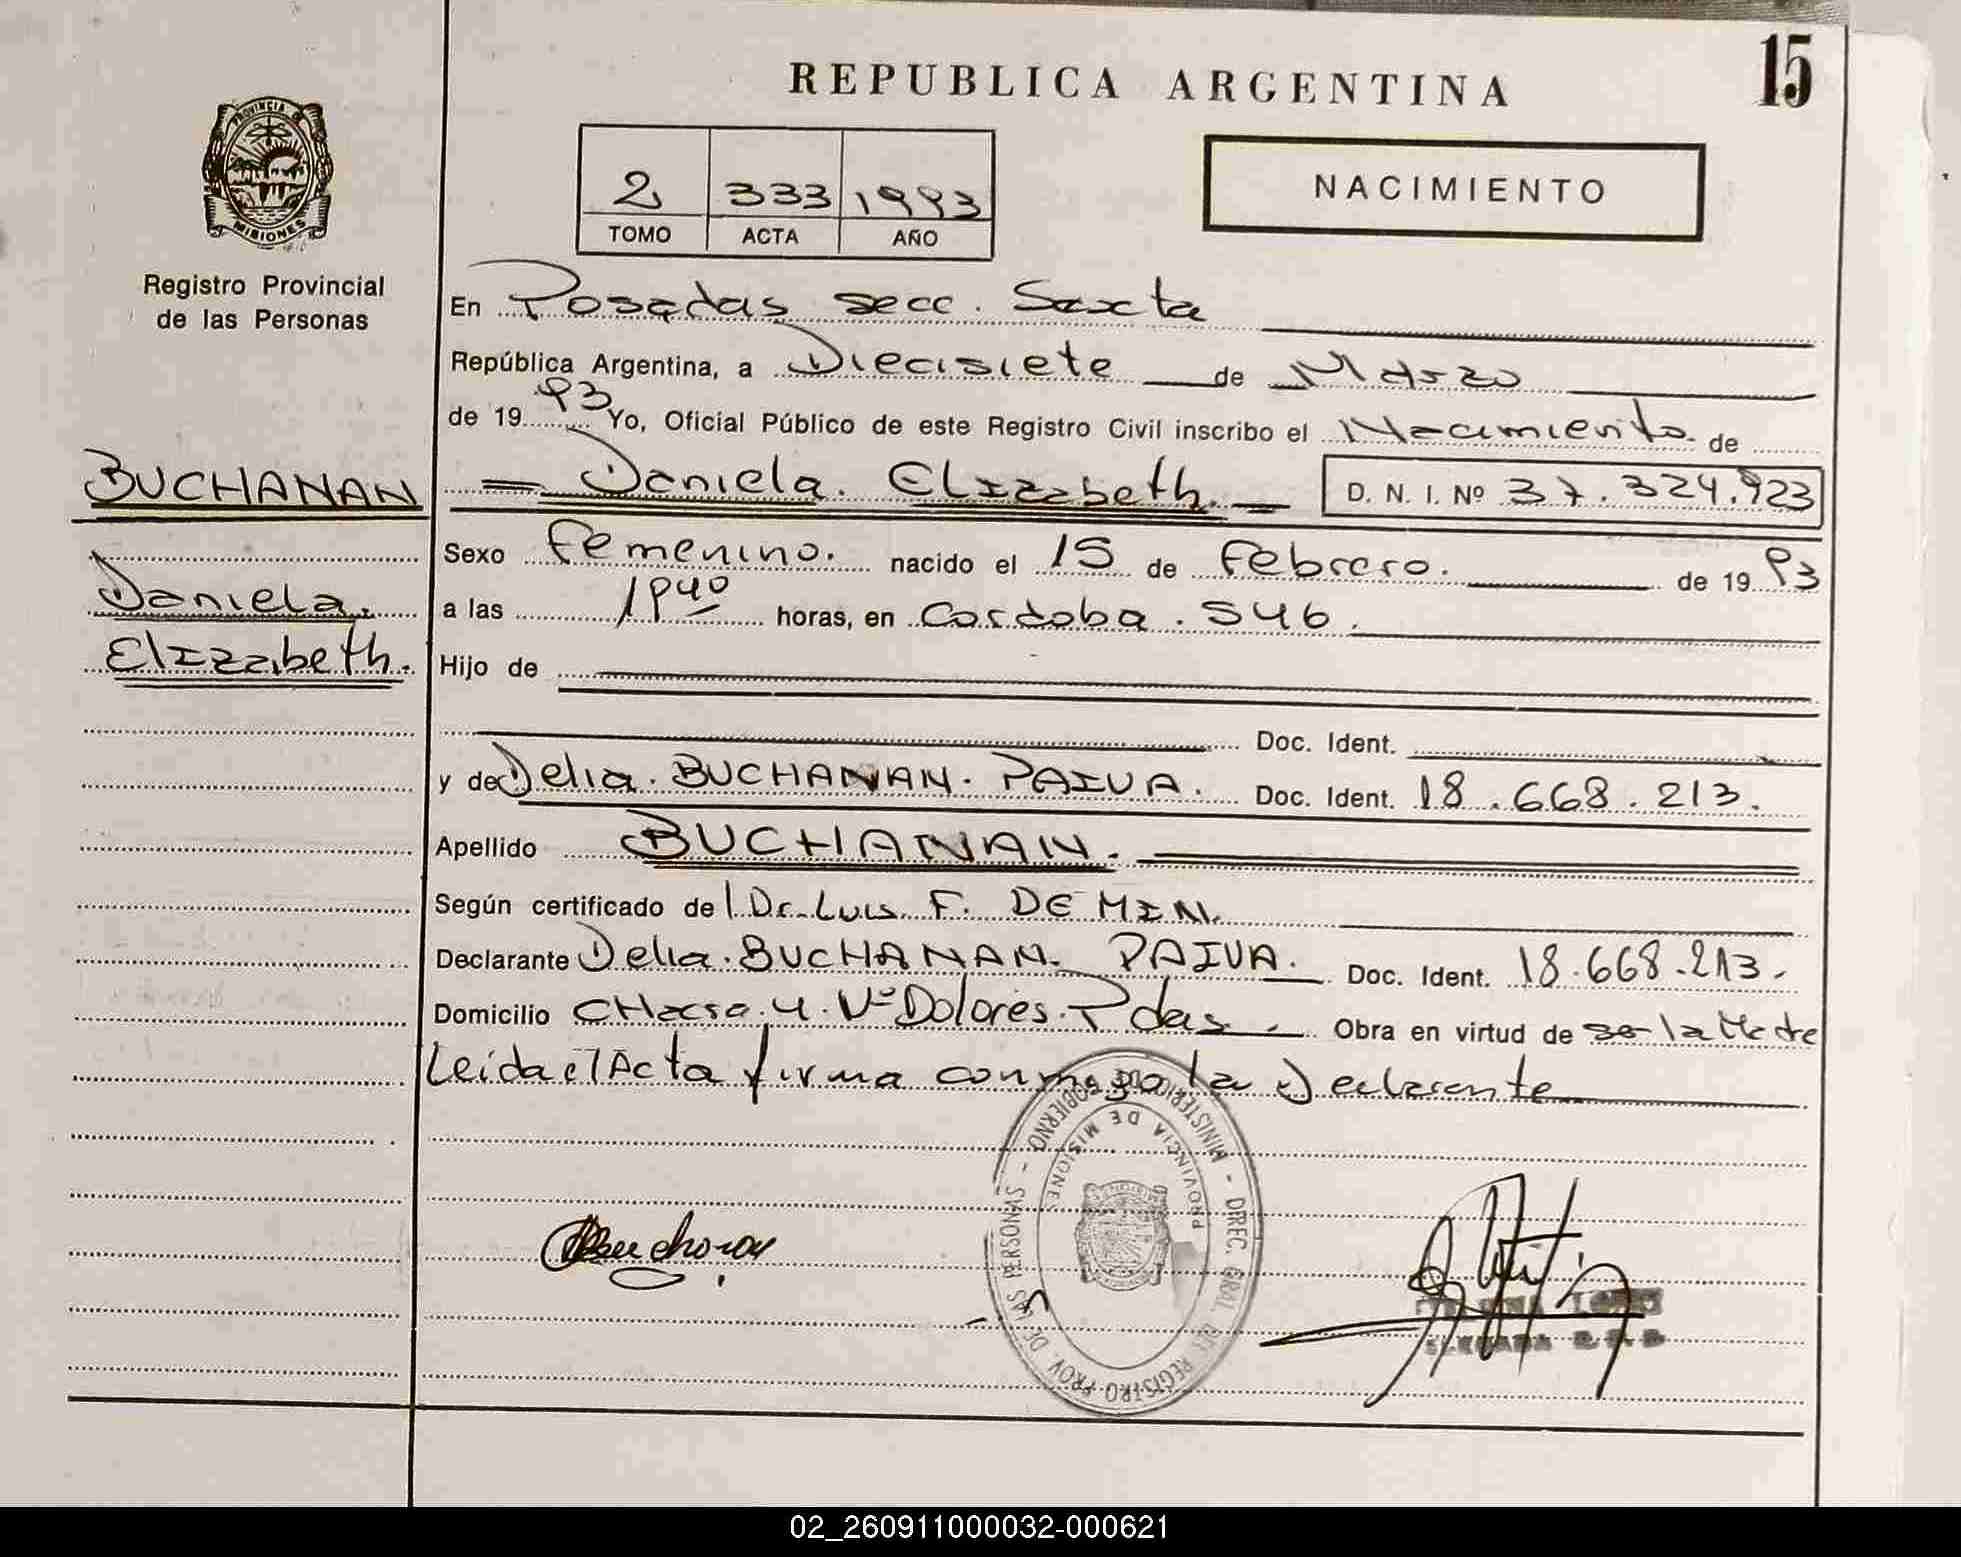 REPUBLICA ARGENTINA
15
PROVINCIA
MISIONES
Registro Provincial
de las Personas
2 333 1993
TOMO ACTA AÑO
NACIMIENTO
En Posadas secc. Sexta
República Argentina, a Diecisiete de Marzo
de 19 93 Yo, Oficial Público de este Registro Civil inscribo el Nacimiento de
BUCHANAN
Daniela
Elizabeth.
Daniela. Elizabeth. D. N. I. Nº 37.324.923
Sexo Femenino. nacido el 15 de Febrero. de 19 93
a las 1940 horas, en Cordoba. 546.
Hijo de
Doc. Ident.
y de Delia. BUCHANAN. PAIVA. Doc. Ident. 18.668.213.
Apellido BUCHANAN.
Según certificado del Dr. Luis F. DE MIN.
Declarante Delia. BUCHANAN. PAIVA. Doc. Ident. 18.668.213.
Domicilio CHacra. 4. Vª Dolores. Pdas. Obra en virtud de ser la Madre
Leida el Acta firma conmigo la Declarante
MINISTERIO DE GOBIERNO - DIREC. GRAL. DEL REGISTRO PROV. DE LAS PERSONAS -
PROVINCIA DE MISIONES
02_260911000032-000621